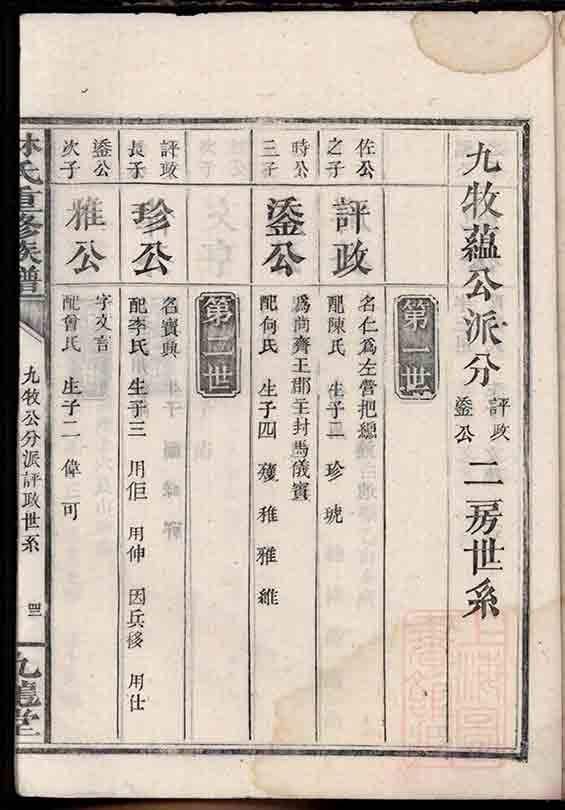 九牧蘊公派分評政鋈公二房世系
第一世
佐公之子
評政
名仁爲左營把總
配陳氏 生子二 珍 琥
時公三子
鋈公
爲尚齊王郡主封爲儀賓
配何氏 生子四 稚 雅 維
第二世
評政長子
珍公
名寶典
配李氏 生子三 用佢 用伸 因兵移 用仕
鋈公次子
雅公
字文言
配曾氏 生子二 偉 可
林氏重修族譜
九牧公分派評政世系
九龍堂